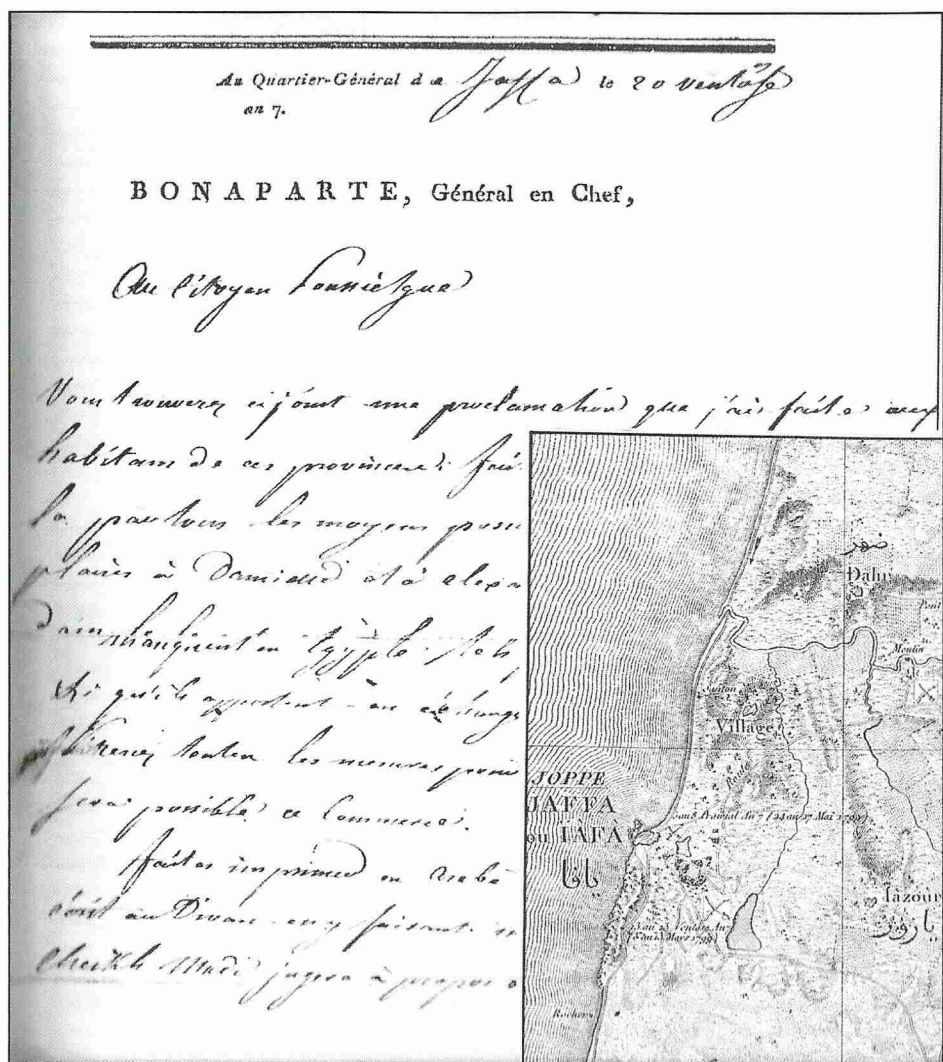 Au Quartier-Général de Jaffa le 20 ventôse
an 7.
BONAPARTE, Général en Chef,
Au Citoyen Poussielgue
Vous trouverez cijoint une proclamation que j'ai faite aux
habitans de ces provinces; fai
la par tous les moyens poss
à Damiette et à alexa
manquent en Egypte
qu'ils apportent en échange
toutes les mesures pour
sera possible ce Commerce.
faites imprimer en arabe
au Divan en y faisant
Cheikh Madi jugera à propos
ضهر
Dahr
Pont
Moulin
Santon
Village
Puits
JOPPE
JAFFA
ou IÀFA
يافا
5 au 8 Prairial An 7 (24 au 27 Mai 1799)
13 au 23 Ventôse An 7
(3 au 13 Mars 1799)
Iazour
يازور
Rochers